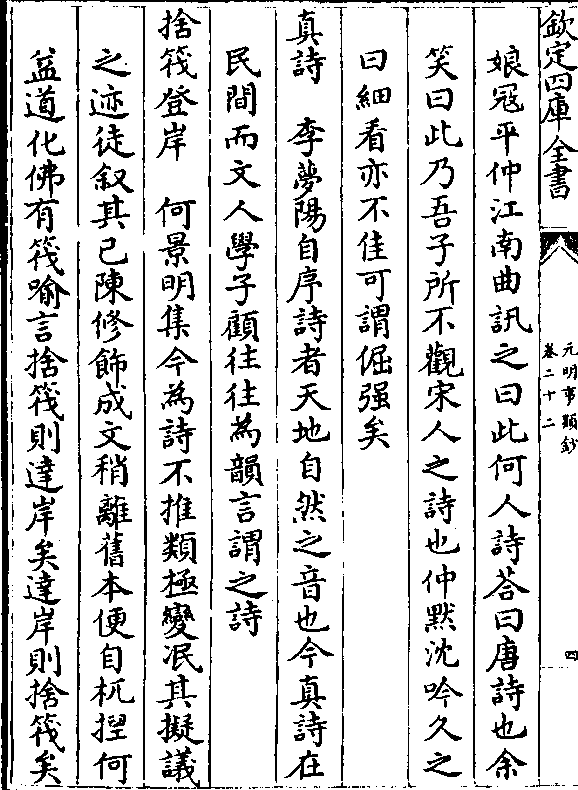 欽定四庫全書
元明事類鈔
卷二十二
四
娘冦平仲江南曲訊之曰此何人詩荅曰唐詩也余
笑曰此乃吾子所不觀宋人之詩也仲黙沈吟久之
曰細看亦不佳可謂倔强矣
真詩　李夢陽自序詩者天地自然之音也今真詩在
民間而文人學子顧往往為韻言謂之詩
捨筏登岸　何景明集今為詩不推類極變冺其擬議
之迹徒叙其已陳修飾成文稍離舊本便自杌揑何
益道化佛有筏喻言捨筏則達岸矣達岸則捨筏矣